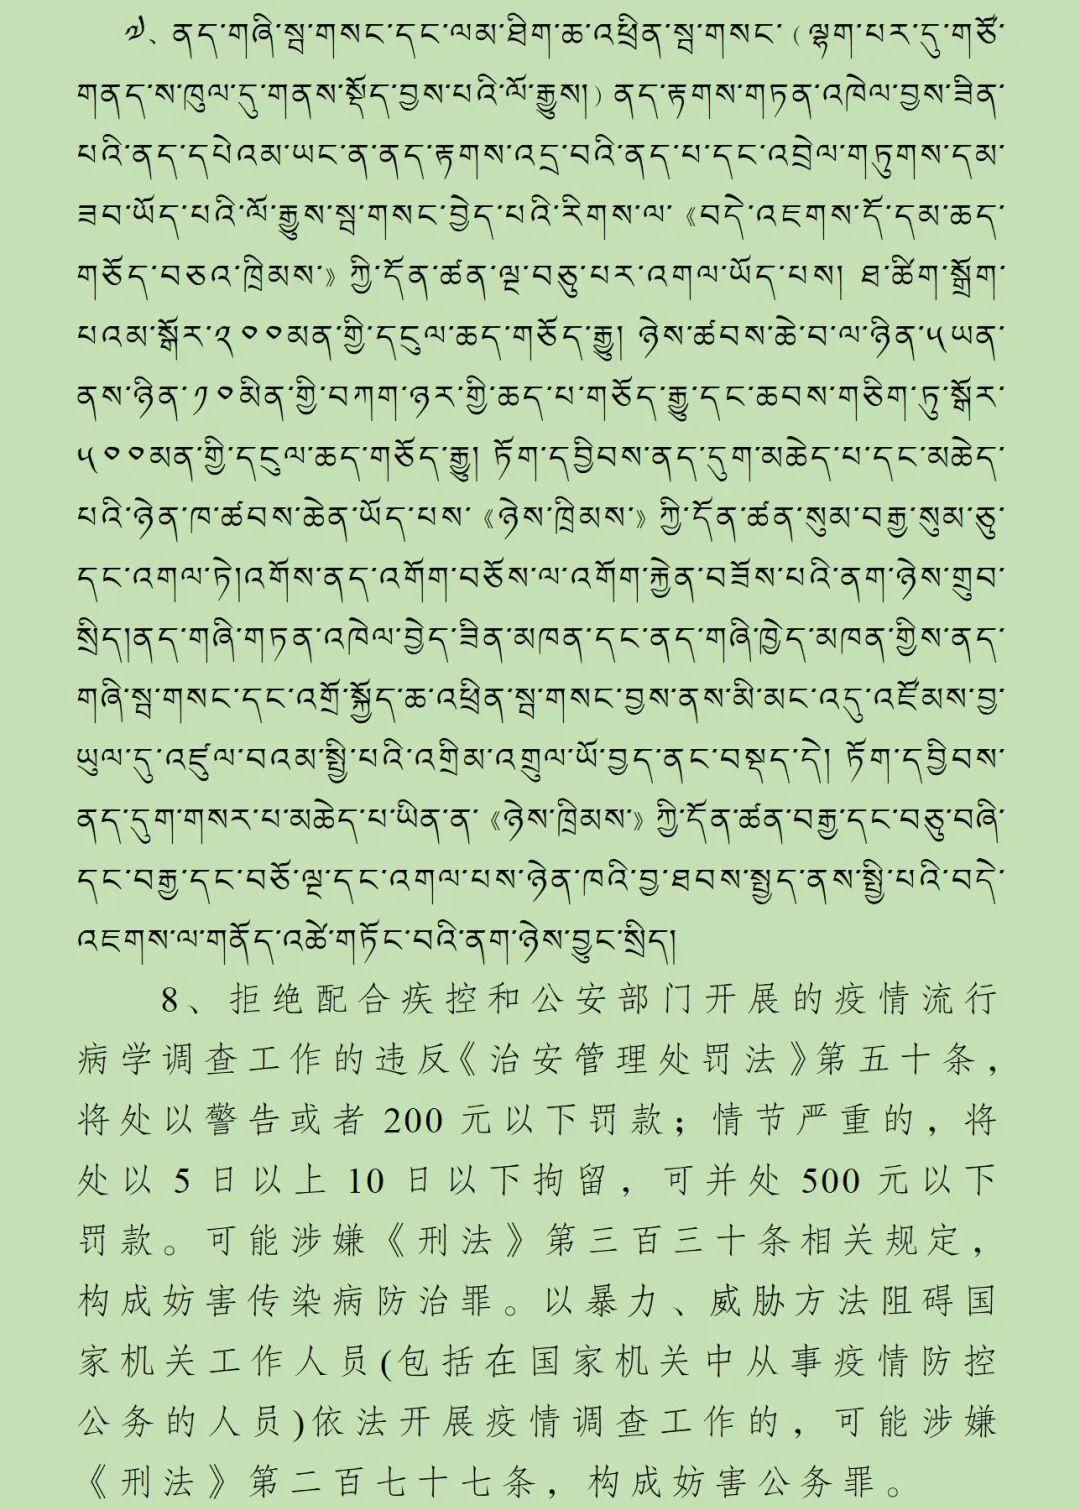 ༧、ནད་གཞི་སྦ་གསང་དང་ལམ་ཐིག་ཆ་འཕྲིན་སྦ་གསང་(ལྷག་པར་དུ་གཙོ་
གནད་ས་ཁུལ་དུ་གནས་སྡོད་བྱས་པའི་ལོ་རྒྱུས།)ནད་རྟགས་གཏན་འཁེལ་བྱས་ཟིན་
པའི་ནད་དཔེའམ་ཡང་ན་ནད་རྟགས་འདྲ་བའི་ནད་པ་དང་འབྲེལ་གཏུགས་དམ་
ཟབ་ཡོད་པའི་ལོ་རྒྱུས་སྦ་གསང་བྱེད་པའི་རིགས་ལ་《བདེ་འཇགས་དོ་དམ་ཆད་
གཅོད་བཅའ་ཁྲིམས་》ཀྱི་དོན་ཚན་ལྔ་བཅུ་པར་འགལ་ཡོད་པས། ཐ་ཚིག་སྒྲོག་
པའམ་སྒོར་༢༠༠མན་གྱི་དངུལ་ཆད་གཅོད་རྒྱུ། ཉེས་ཚབས་ཆེ་བ་ལ་ཉིན་༥ཡན་
ནས་ཉིན་༡༠མིན་གྱི་བཀག་ཉར་གྱི་ཆད་པ་གཅོད་རྒྱུ་དང་ཆབས་གཅིག་ཏུ་སྒོར་
༥༠༠མན་གྱི་དངུལ་ཆད་གཅོད་རྒྱུ། ཏོག་དབྱིབས་ནད་དུག་མཆེད་པ་དང་མཆེད་
པའི་ཉེན་ཁ་ཚབས་ཆེན་ཡོད་པས་《ཉེས་ཁྲིམས་》ཀྱི་དོན་ཚན་སུམ་བརྒྱ་སུམ་ཅུ་
དང་འགལ་ཏེ།འགོས་ནད་འགོག་བཅོས་ལ་འགོག་རྐྱེན་བཟོས་པའི་ནག་ཉེས་གྲུབ་
སྲིད།ནད་གཞི་གཏན་འཁེལ་བྱེད་ཟིན་མཁན་དང་ནད་གཞི་ཁྱེད་མཁན་གྱིས་ནད་
གཞི་སྦ་གསང་དང་འགྲོ་སྐྱོད་ཆ་འཕྲིན་སྦ་གསང་བྱས་ནས་མི་མང་འདུ་འཛོམས་བྱ་
ཡུལ་དུ་འཛུལ་བའམ་སྤྱི་པའི་འགྲིམ་འགྲུལ་ཡོ་བྱད་ནང་བསྡད་དེ། ཏོག་དབྱིབས་
ནད་དུག་གསར་པ་མཆེད་པ་ཡིན་ན་《ཉེས་ཁྲིམས་》ཀྱི་དོན་ཚན་བརྒྱ་དང་བཅུ་བཞི་
དང་བརྒྱ་དང་བཅོ་ལྔ་དང་འགལ་པས་ཉེན་ཁའི་བྱ་ཐབས་སྤྱད་ནས་སྤྱི་པའི་བདེ་
འཇགས་ལ་གནོད་འཚེ་གཏོང་བའི་ནག་ཉེས་བྱུང་སྲིད།
8、拒绝配合疾控和公安部门开展的疫情流行
病学调查工作的违反《治安管理处罚法》第五十条，
将处以警告或者 200 元以下罚款；情节严重的，将
处以 5 日以上 10 日以下拘留，可并处 500 元以下
罚款。可能涉嫌《刑法》第三百三十条相关规定，
构成妨害传染病防治罪。以暴力、威胁方法阻碍国
家机关工作人员(包括在国家机关中从事疫情防控
公务的人员)依法开展疫情调查工作的，可能涉嫌
《刑法》第二百七十七条，构成妨害公务罪。